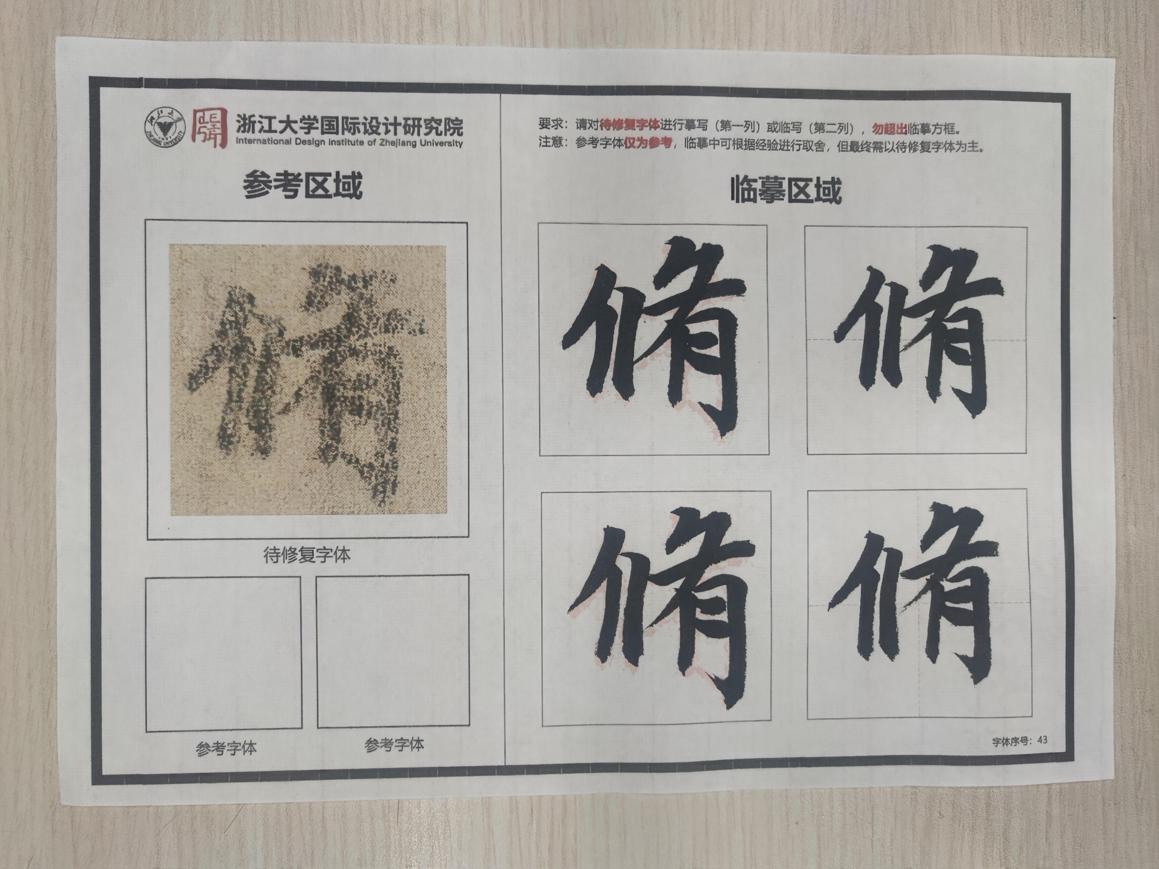 浙江大学国际设计研究院
International Design Institute of Zhejiang University
参考区域
脩
待修复字体
参考字体
参考字体
要求：请对待修复字体进行摹写（第一列）或临写（第二列），勿超出临摹方框。
注意：参考字体仅为参考，临摹中可根据经验进行取舍，但最终需以待修复字体为主。
临摹区域
脩 脩
脩 脩
字体序号：43